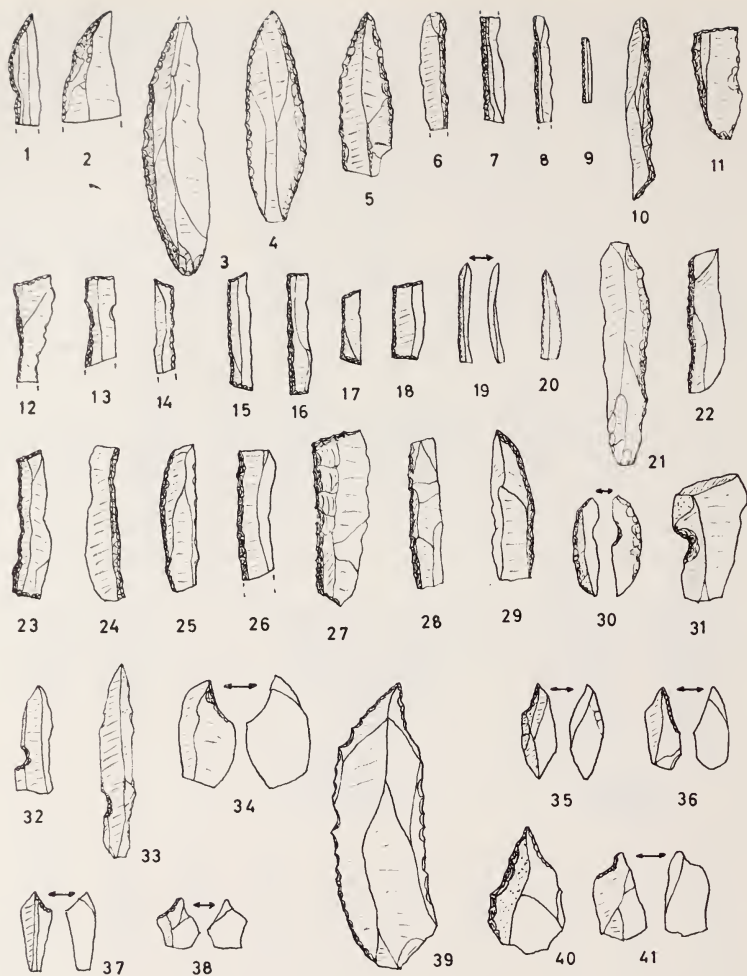 1 2 3 4 5 6 7 8 9 10 11
12 13 14 15 16 17 18 19 20 21 22
23 24 25 26 27 28 29 30 31
32 33 34 35 36
37 38 39 40 41